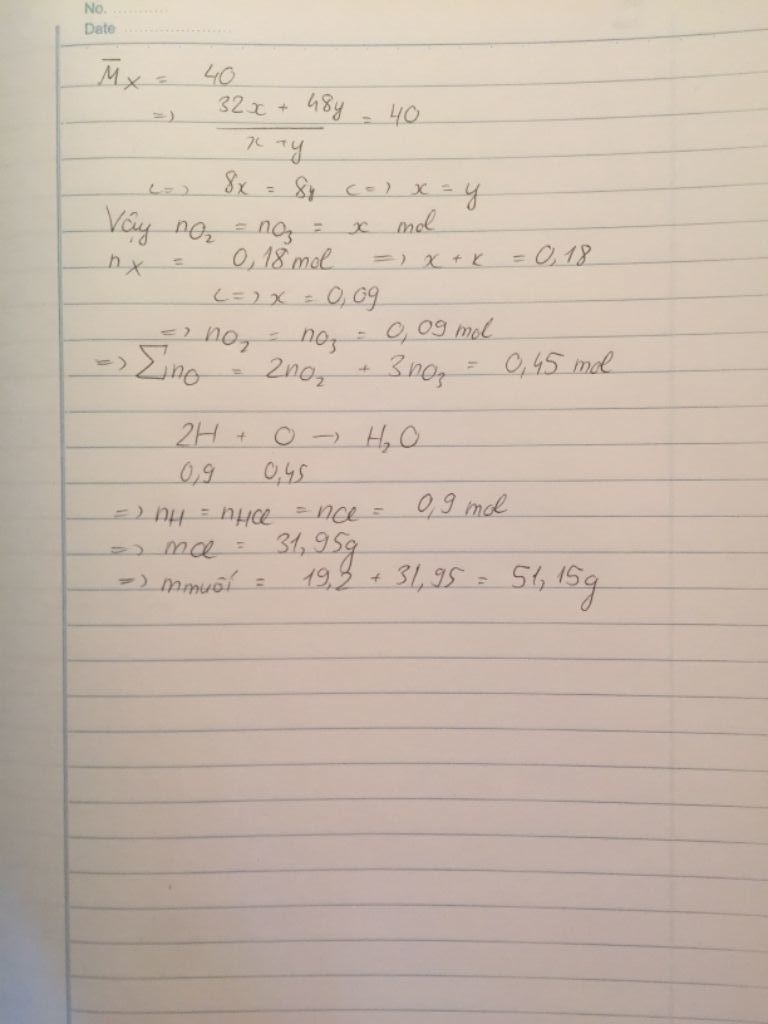 No. ............
Date ......................
M̅x = 40
=> (32x + 48y)/(x + y) = 40
<=> 8x = 8y <=> x = y
Vậy nO₂ = nO₃ = x mol
nX = 0,18 mol => x + x = 0,18
<=> x = 0,09
=> nO₂ = nO₃ = 0,09 mol
=> ∑nO = 2nO₂ + 3nO₃ = 0,45 mol
2H + O → H₂O
0,9 0,45
=> nH = nHCl = nCl = 0,9 mol
=> mCl = 31,95g
=> mmuối = 19,2 + 31,95 = 51,15g